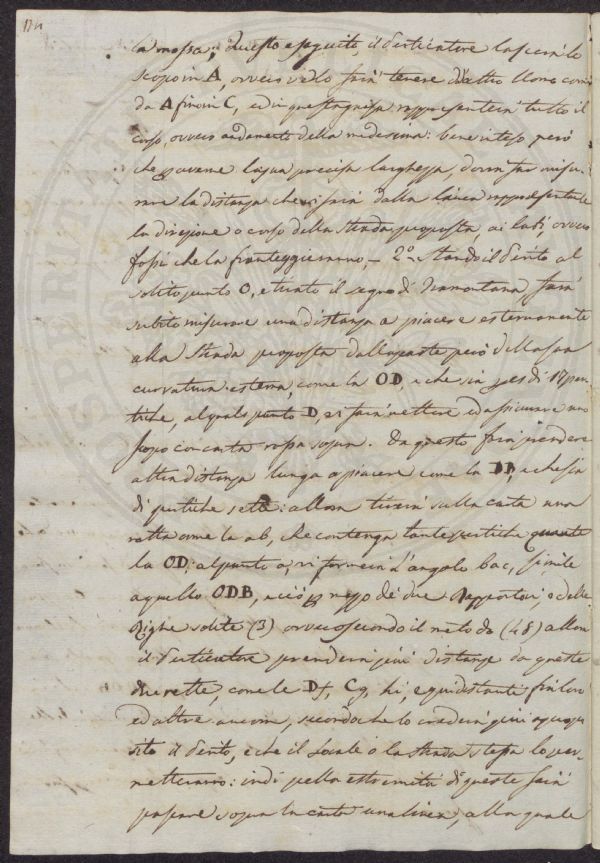 la mossa; questo eseguito, il Perticatore lascerà lo
scopo in A, ovvero vedo farà tenere d'altro Uomo come
da A fino in C, ed in questa guisa rappresenterà tutto il
corso, ovvero andamento della medesima: bene inteso però
che per averne la sua precisa larghezza, dovrà far misu-
rare la distanza che vi sarà dalla linea rappresentante
la direzione o corso della strada proposta, ai lati, ovvero
fossi che la fronteggieranno, — 2º stando il Perito al
solito punto O, e tirato il segno di Tramontana farà
subito misurare una distanza a piacere esternamente
alla strada proposta dalla parte però della sua
curvatura esterna, come la OD, e che sia per es. di 17 per-
tiche, al qual punto D, vi farà mettere ed assicurare uno
scopo con carta rossa sopra. Da questo farà prendere
altra distanza lunga a piacere come la DB, e che sia
di pertiche sette: allora tirerà sulla carta una
retta come la ab, che contenga tante pertiche quante
la OD; al punto a, vi formerà l'angolo bac, simile
a quello ODB, e ciò p mezzo de' due Rapportatori, o delle
Righe solite (3) ovvero secondo il metodo (48) allora
il Perticatore prenderà più distanze da queste
due rette, come le Df, Cg, hi, equidistanti fra loro
ed altre ancora, secondo che lo crederà più a propo-
sito il Perito, e che il locale o la strada stessa lo per-
metteranno: indi pella estremità di queste farà
passare sopra la carta una linea, alla quale